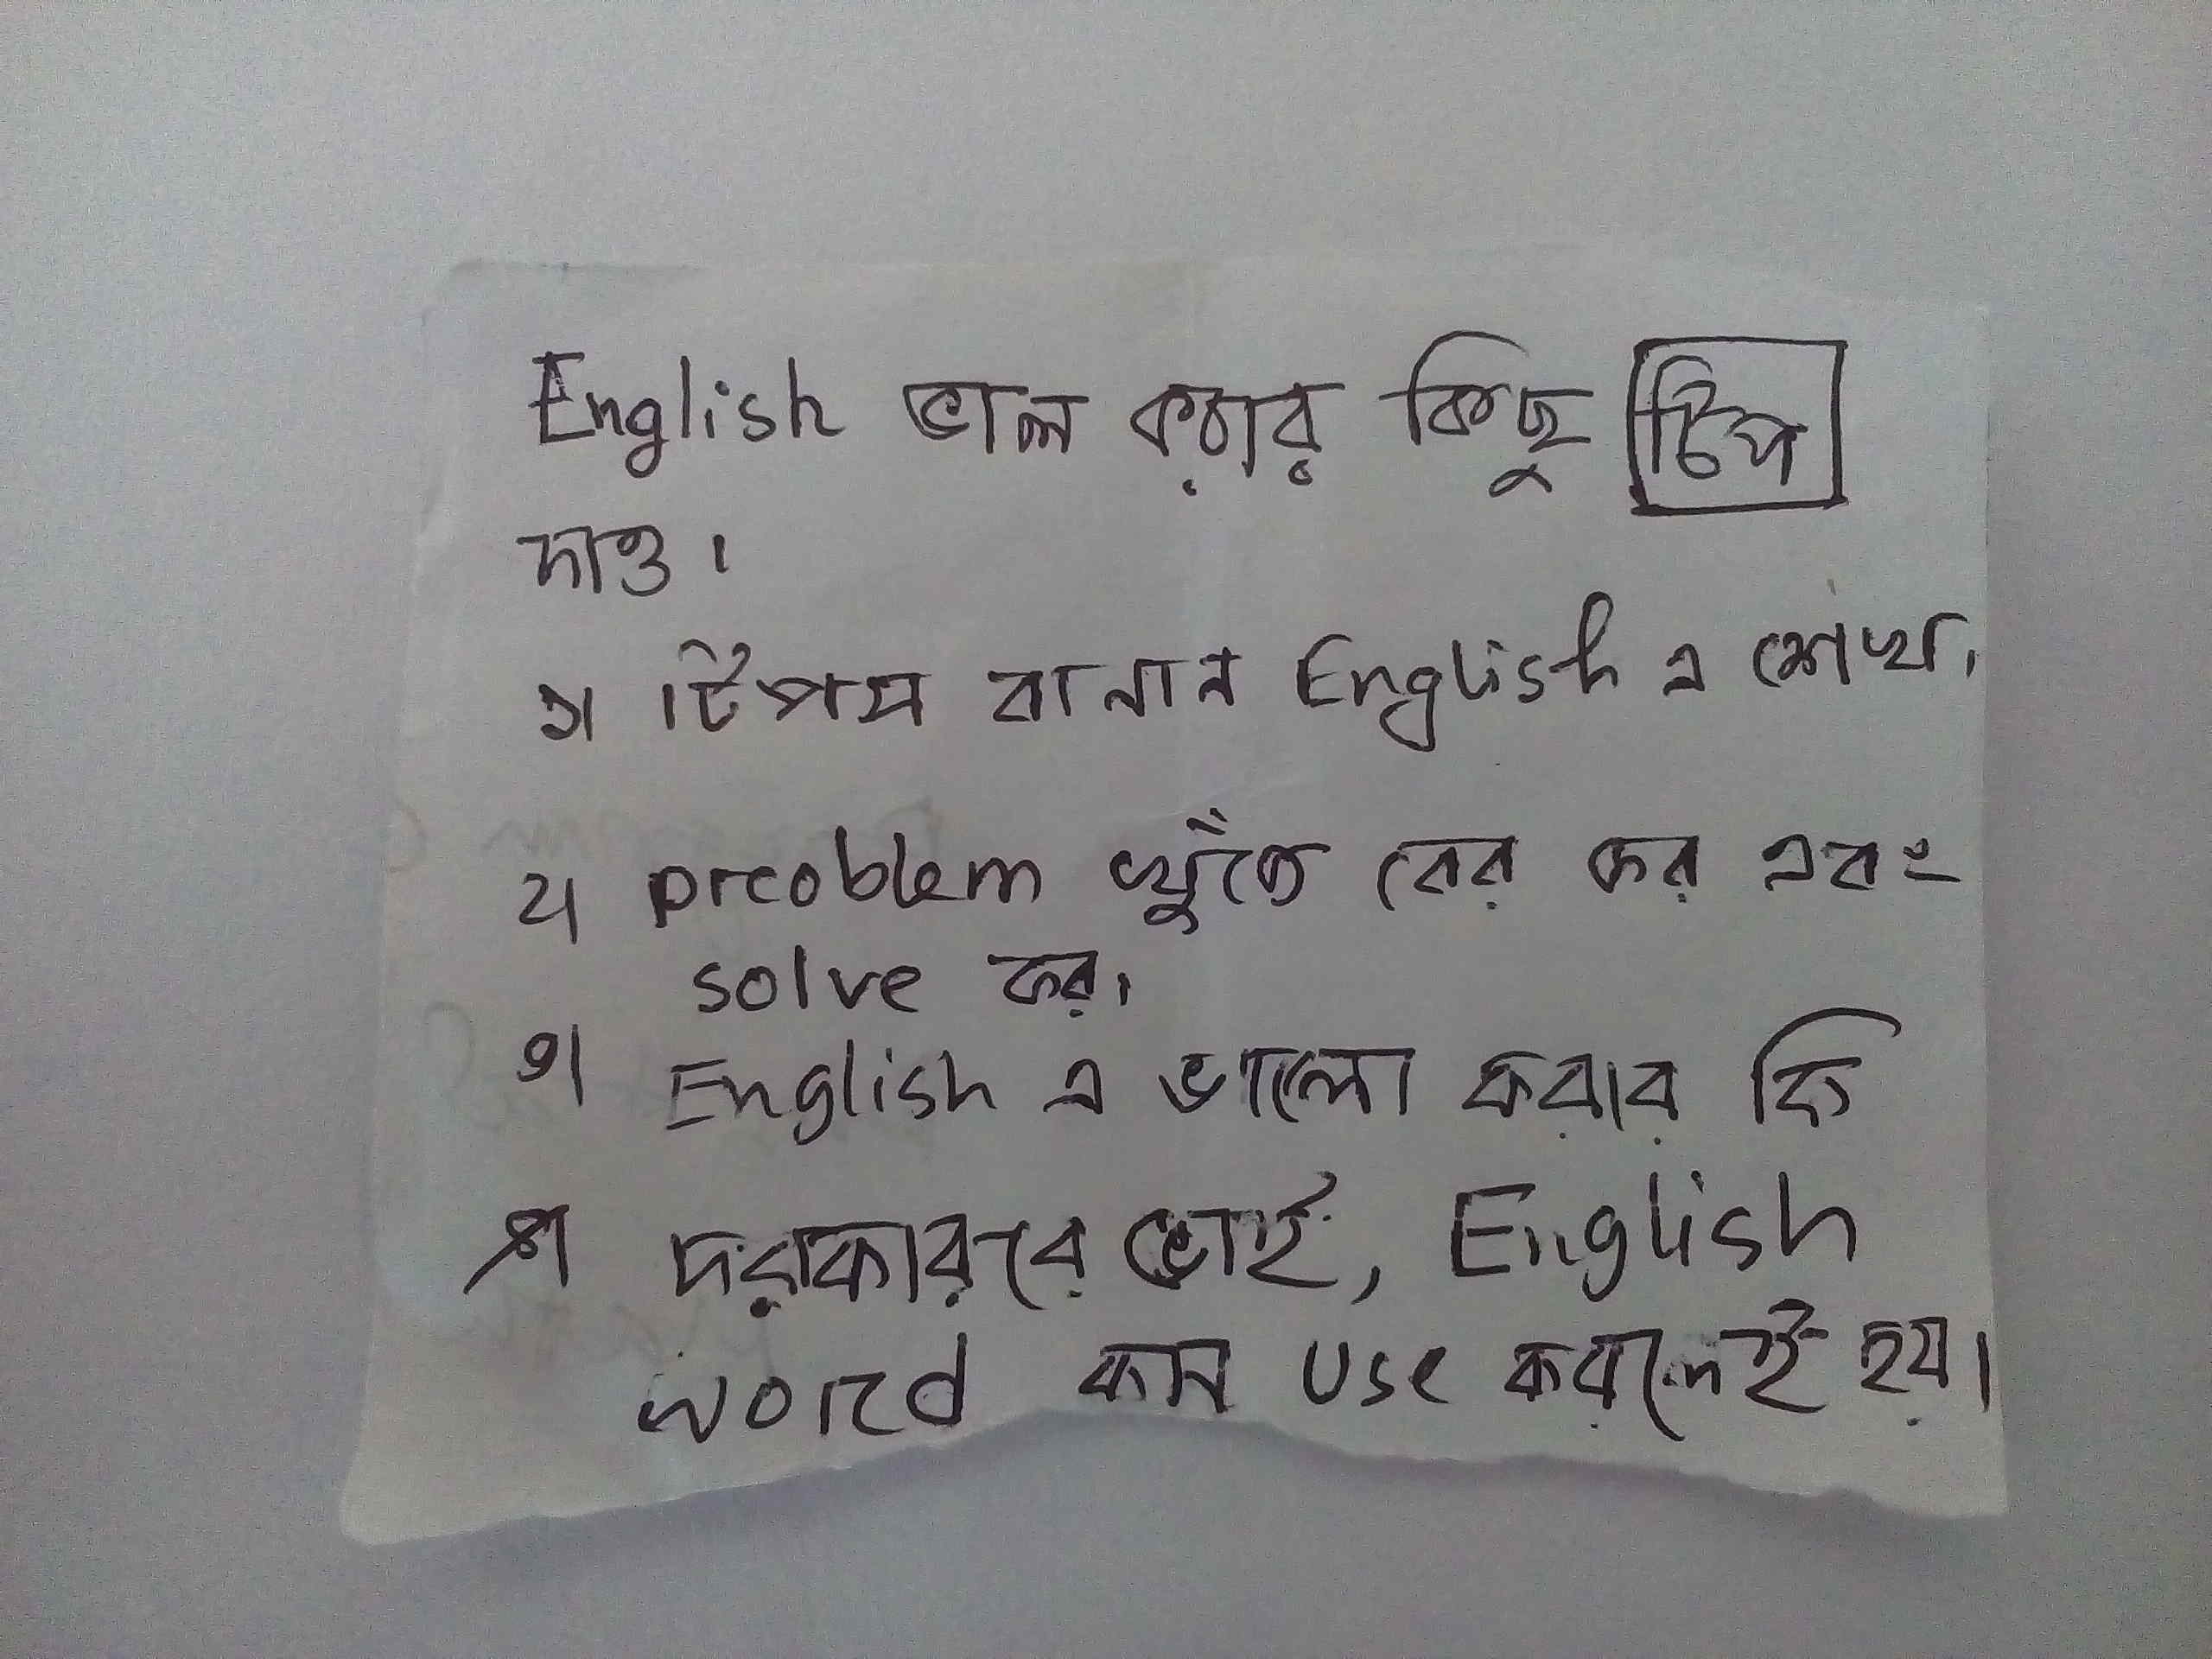 English ভাল করার কিছু টিপ
দাও।
১। টিপস বানান English এ শেখ।
২। preoblem খুঁজে বের কর এবং
solve কর।
৩। English এ ভালো করার কি
দরকাররে ভাই, English
word কম use করলেই হয়।